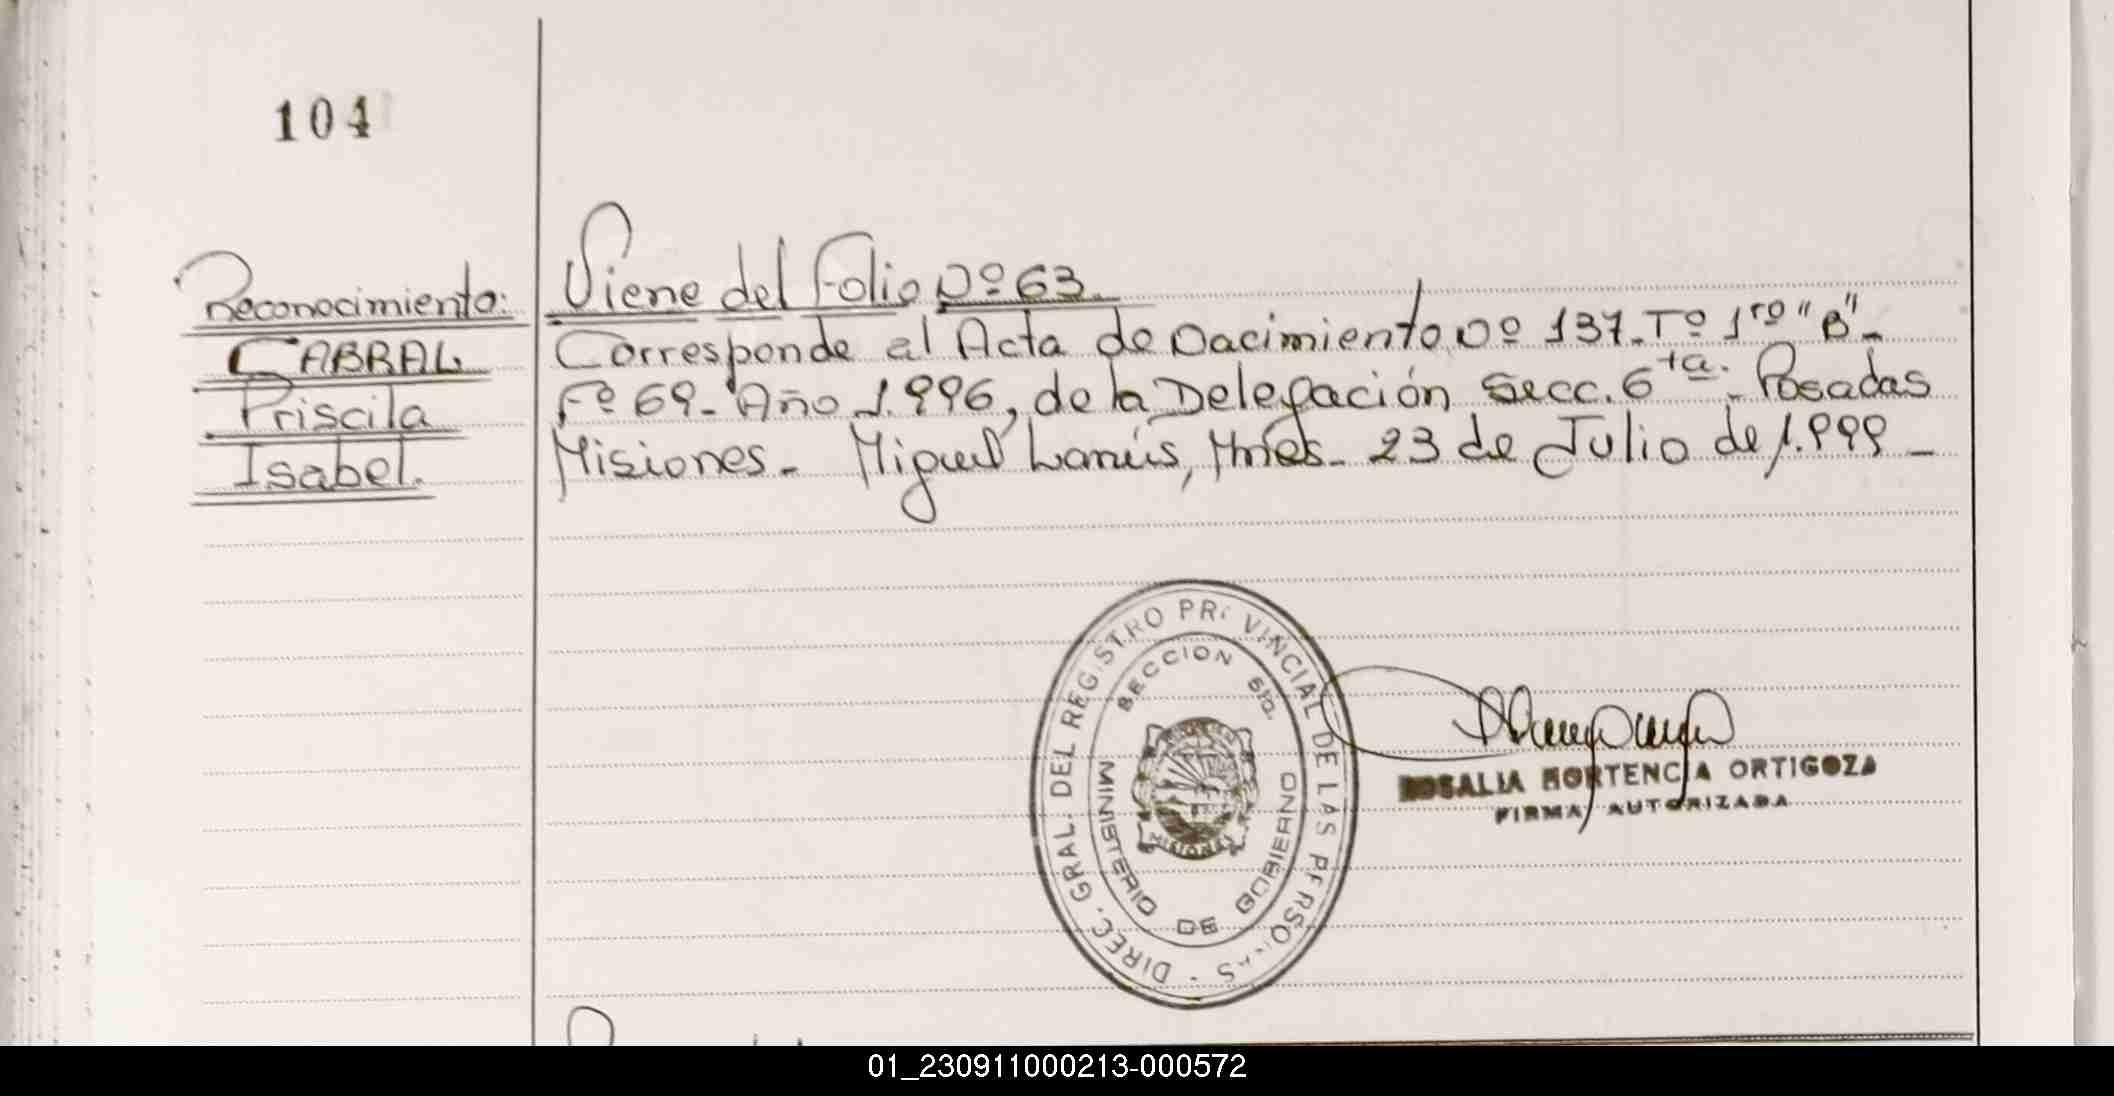 104
Reconocimiento:
CABRAL
Priscila
Isabel.
Viene del Folio Nº 63.
Corresponde al Acta de Nacimiento Nº 137. Tº 1ro "B"-
Fº 69- Año 1.996, de la Delegación Secc. 6ta. - Posadas
Misiones.- Miguel Lanús, Mnes- 23 de Julio de 1.999-
DIREC. GRAL. DEL REGISTRO PROVINCIAL DE LAS PERSONAS
SECCION 6ta.
MINISTERIO DE GOBIERNO
MISIONES
ROSALIA HORTENCIA ORTIGOZA
FIRMA AUTORIZADA
01_230911000213-000572